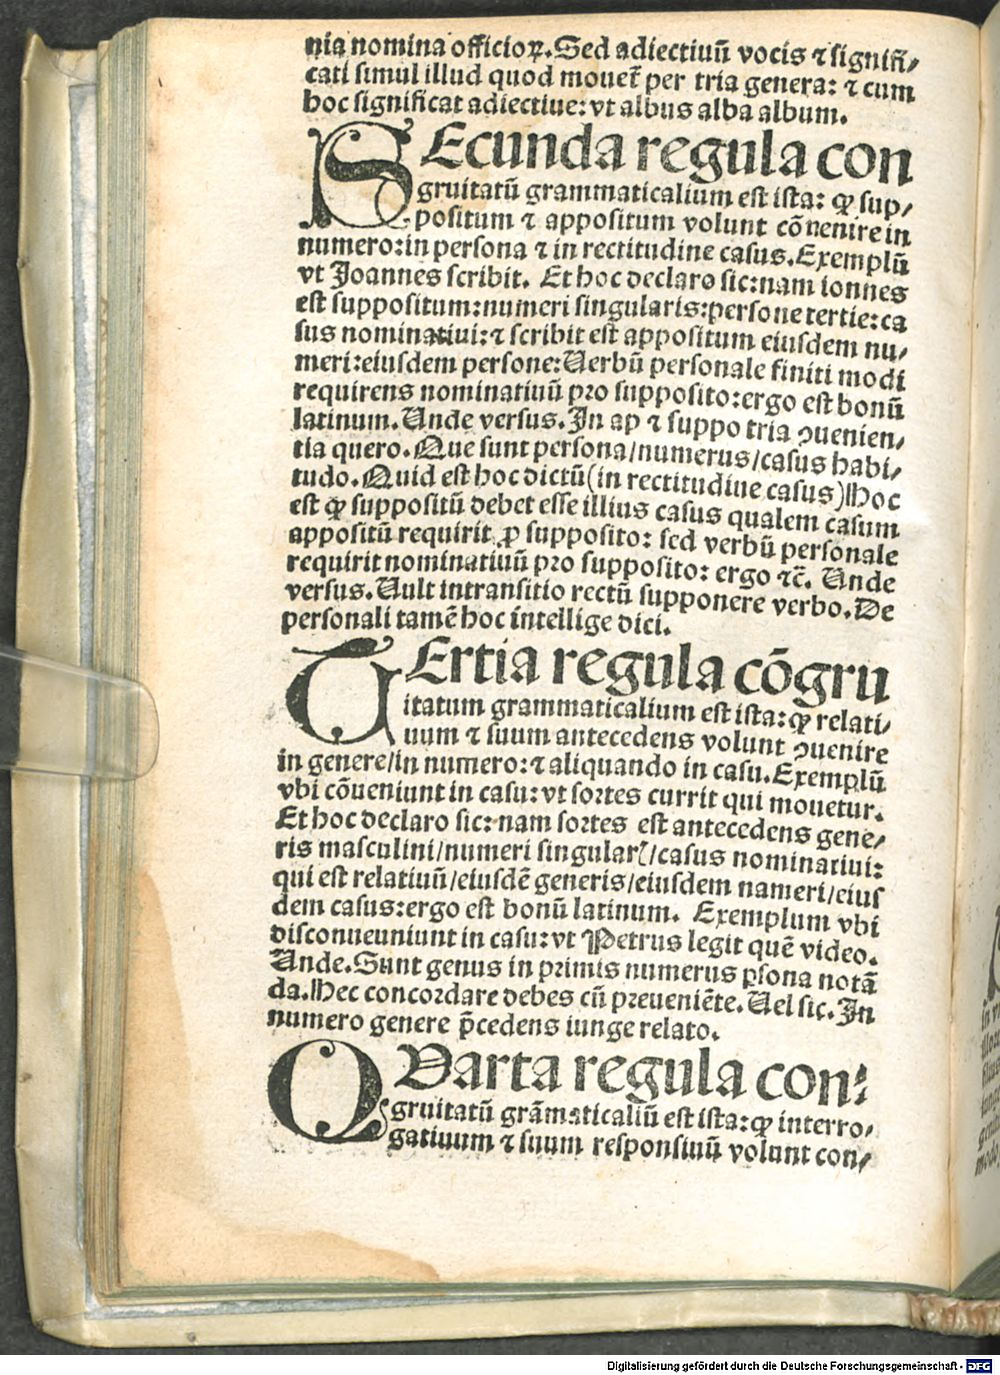 nia nomina officioꝝ. Sed adiectiuũ vocis ⁊ signifi⸗
cati simul illud quod mouet᷑ per tria genera: ⁊ cum
hoc significat adiectiue: vt albus alba album.
SEcunda regula con
gruitatũ grammaticalium est ista: ꝙ sup⸗
positum ⁊ appositum volunt cõuenire in
numero: in persona ⁊ in rectitudine casus. Exemplũ
vt Joannes scribit. Et hoc declaro sic: nam ionnes
est suppositum: numeri singularis: persone tertie: ca
sus nominatiui: ⁊ scribit est appositum eiusdem nu⸗
meri: eiusdem persone: Verbũ personale finiti modi
requirens nominatiuũ pro supposito: ergo est bonũ
latinum. Unde versus. In ap ⁊ suppo tria ꝯuenien⸗
tia quero. Que sunt persona/numerus/casus habi⸗
tudo. Quid est hoc dictũ (in rectitudiue casus) Hoc
est ꝙ suppositũ debet esse illius casus qualem casum
appositũ requirit ꝓ supposito: sed verbũ personale
requirit nominatiuũ pro supposito: ergo ⁊c̃. Unde
versus. Vult intransitio rectũ supponere verbo. De
personali tamẽ hoc intellige dici.
TErtia regula cõgru
itatum grammaticalium est ista: ꝙ relati⸗
uum ⁊ suum antecedens volunt ꝯuenire
in genere/in numero: ⁊ aliquando in casu. Exemplũ
vbi cõueniunt in casu: vt sortes currit qui mouetur.
Et hoc declaro sic: nam sortes est antecedens gene⸗
ris masculini/numeri singularꝭ/casus nominatiui:
qui est relatiuũ/eiusdẽ generis/eiusdem nameri/eius
dem casus: ergo est bonũ latinum. Exemplum vbi
disconueuniunt in casu: vt Petrus legit quẽ video.
Unde. Sunt genus in primis numerus ꝑsona notã
da. Hec concordare debes cũ preueniẽte. Vel sic. In
numero genere p̃cedens iunge relato.
QVarta regula con⸗
gruitatũ grãmaticaliũ est ista: ꝙ interro⸗
gatiuum ⁊ suum responsiuũ volunt con⸗
Digitalisierung gefördert durch die Deutsche Forschungsgemeinschaft - DFG